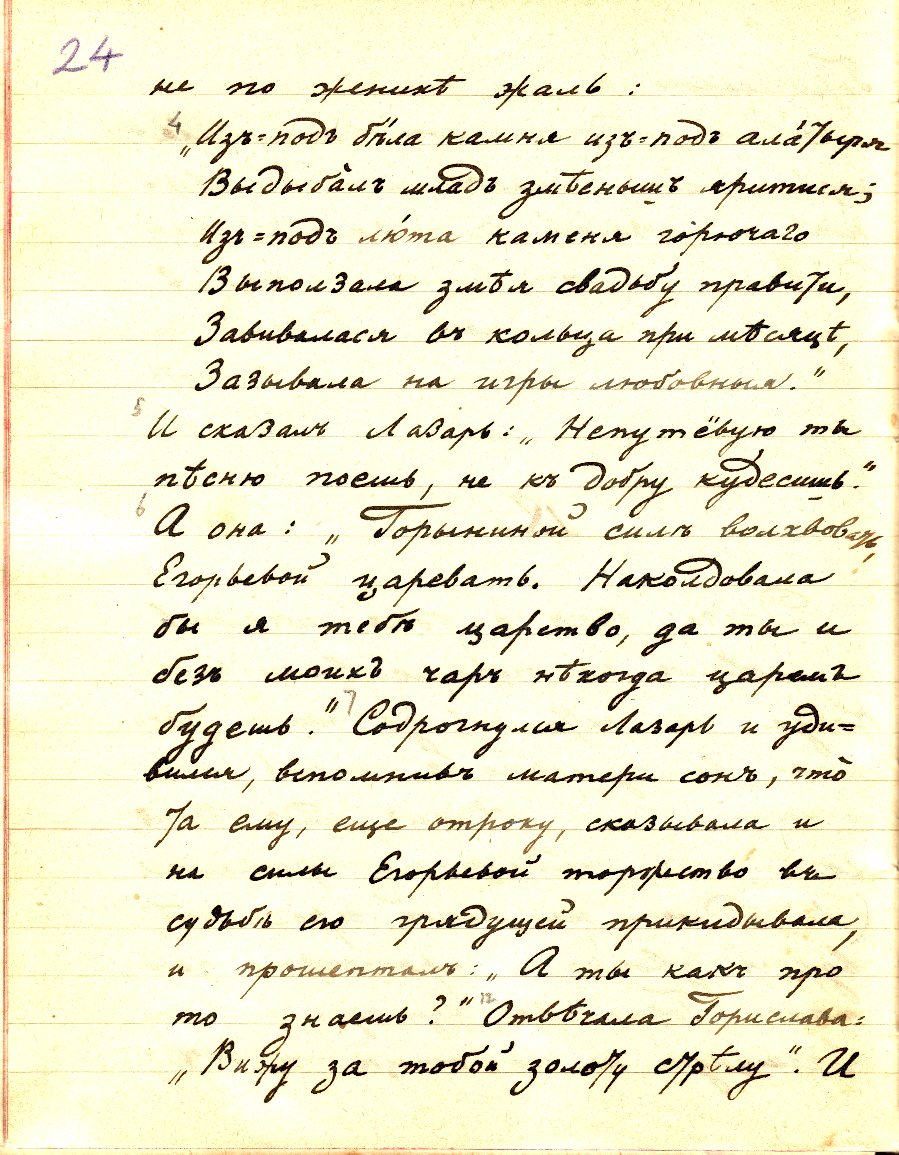 24
не по женихѣ жаль :
4
„Изъ=подъ бѣла камня изъ=подъ ала́тыря
Выдыба̀лъ младъ змѣенышъ яритися;
Изъ=подъ лю́та каменя го́рючаго
Выползала змѣя свадьбу правити,
Завивалася въ кольца при мѣсяцѣ,
Зазывала на игры любовныя."
5
И сказалъ Лазарь: „Непутёвую ты
пѣсню поешь, не къ добру кудесишь."
6
А она : „ Горыниной силѣ волхвовать,
Егорьевой царевать. Наколдовала
бы я тебѣ царство, да ты и
безъ моихъ чаръ нѣкогда царемъ
будешь." 7 Содрогнулся Лазарь и уди=
вился, вспомнивъ матери сонъ, что̀
та ему, еще отроку, сказывала и
на силы Егорьевой торжество въ
судьбѣ его грядущей прикидывала,
и прошепталъ: „ А ты какъ про
то знаешь ?" Отвѣчала Горислава:
„ Вижу за тобой золоту стрѣлу". И